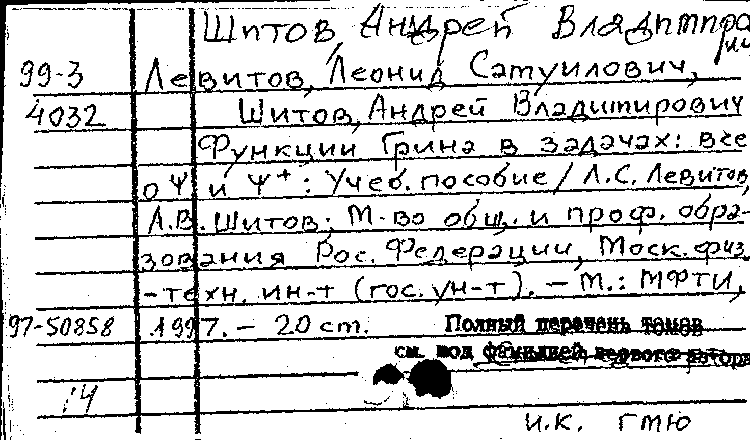 Шитов, Андрей Владимиро
ич
99-3 Левитов, Леонид Самуилович,
4032 Шитов, Андрей Владимирович
Функции Грина в задачах: все
о Ψ и Ψ⁺: Учеб. пособие / Л.С. Левитов,
А.В. Шитов; М-во общ. и проф. обра-
зования Рос. Федерации, Моск. физ.
-техн. ин-т (гос. ун-т). – М.: МФТИ,
97-50858 1997. – 20 ст. Полный перечень томов
см. под фамилией первого автора
14
и.к. гмю